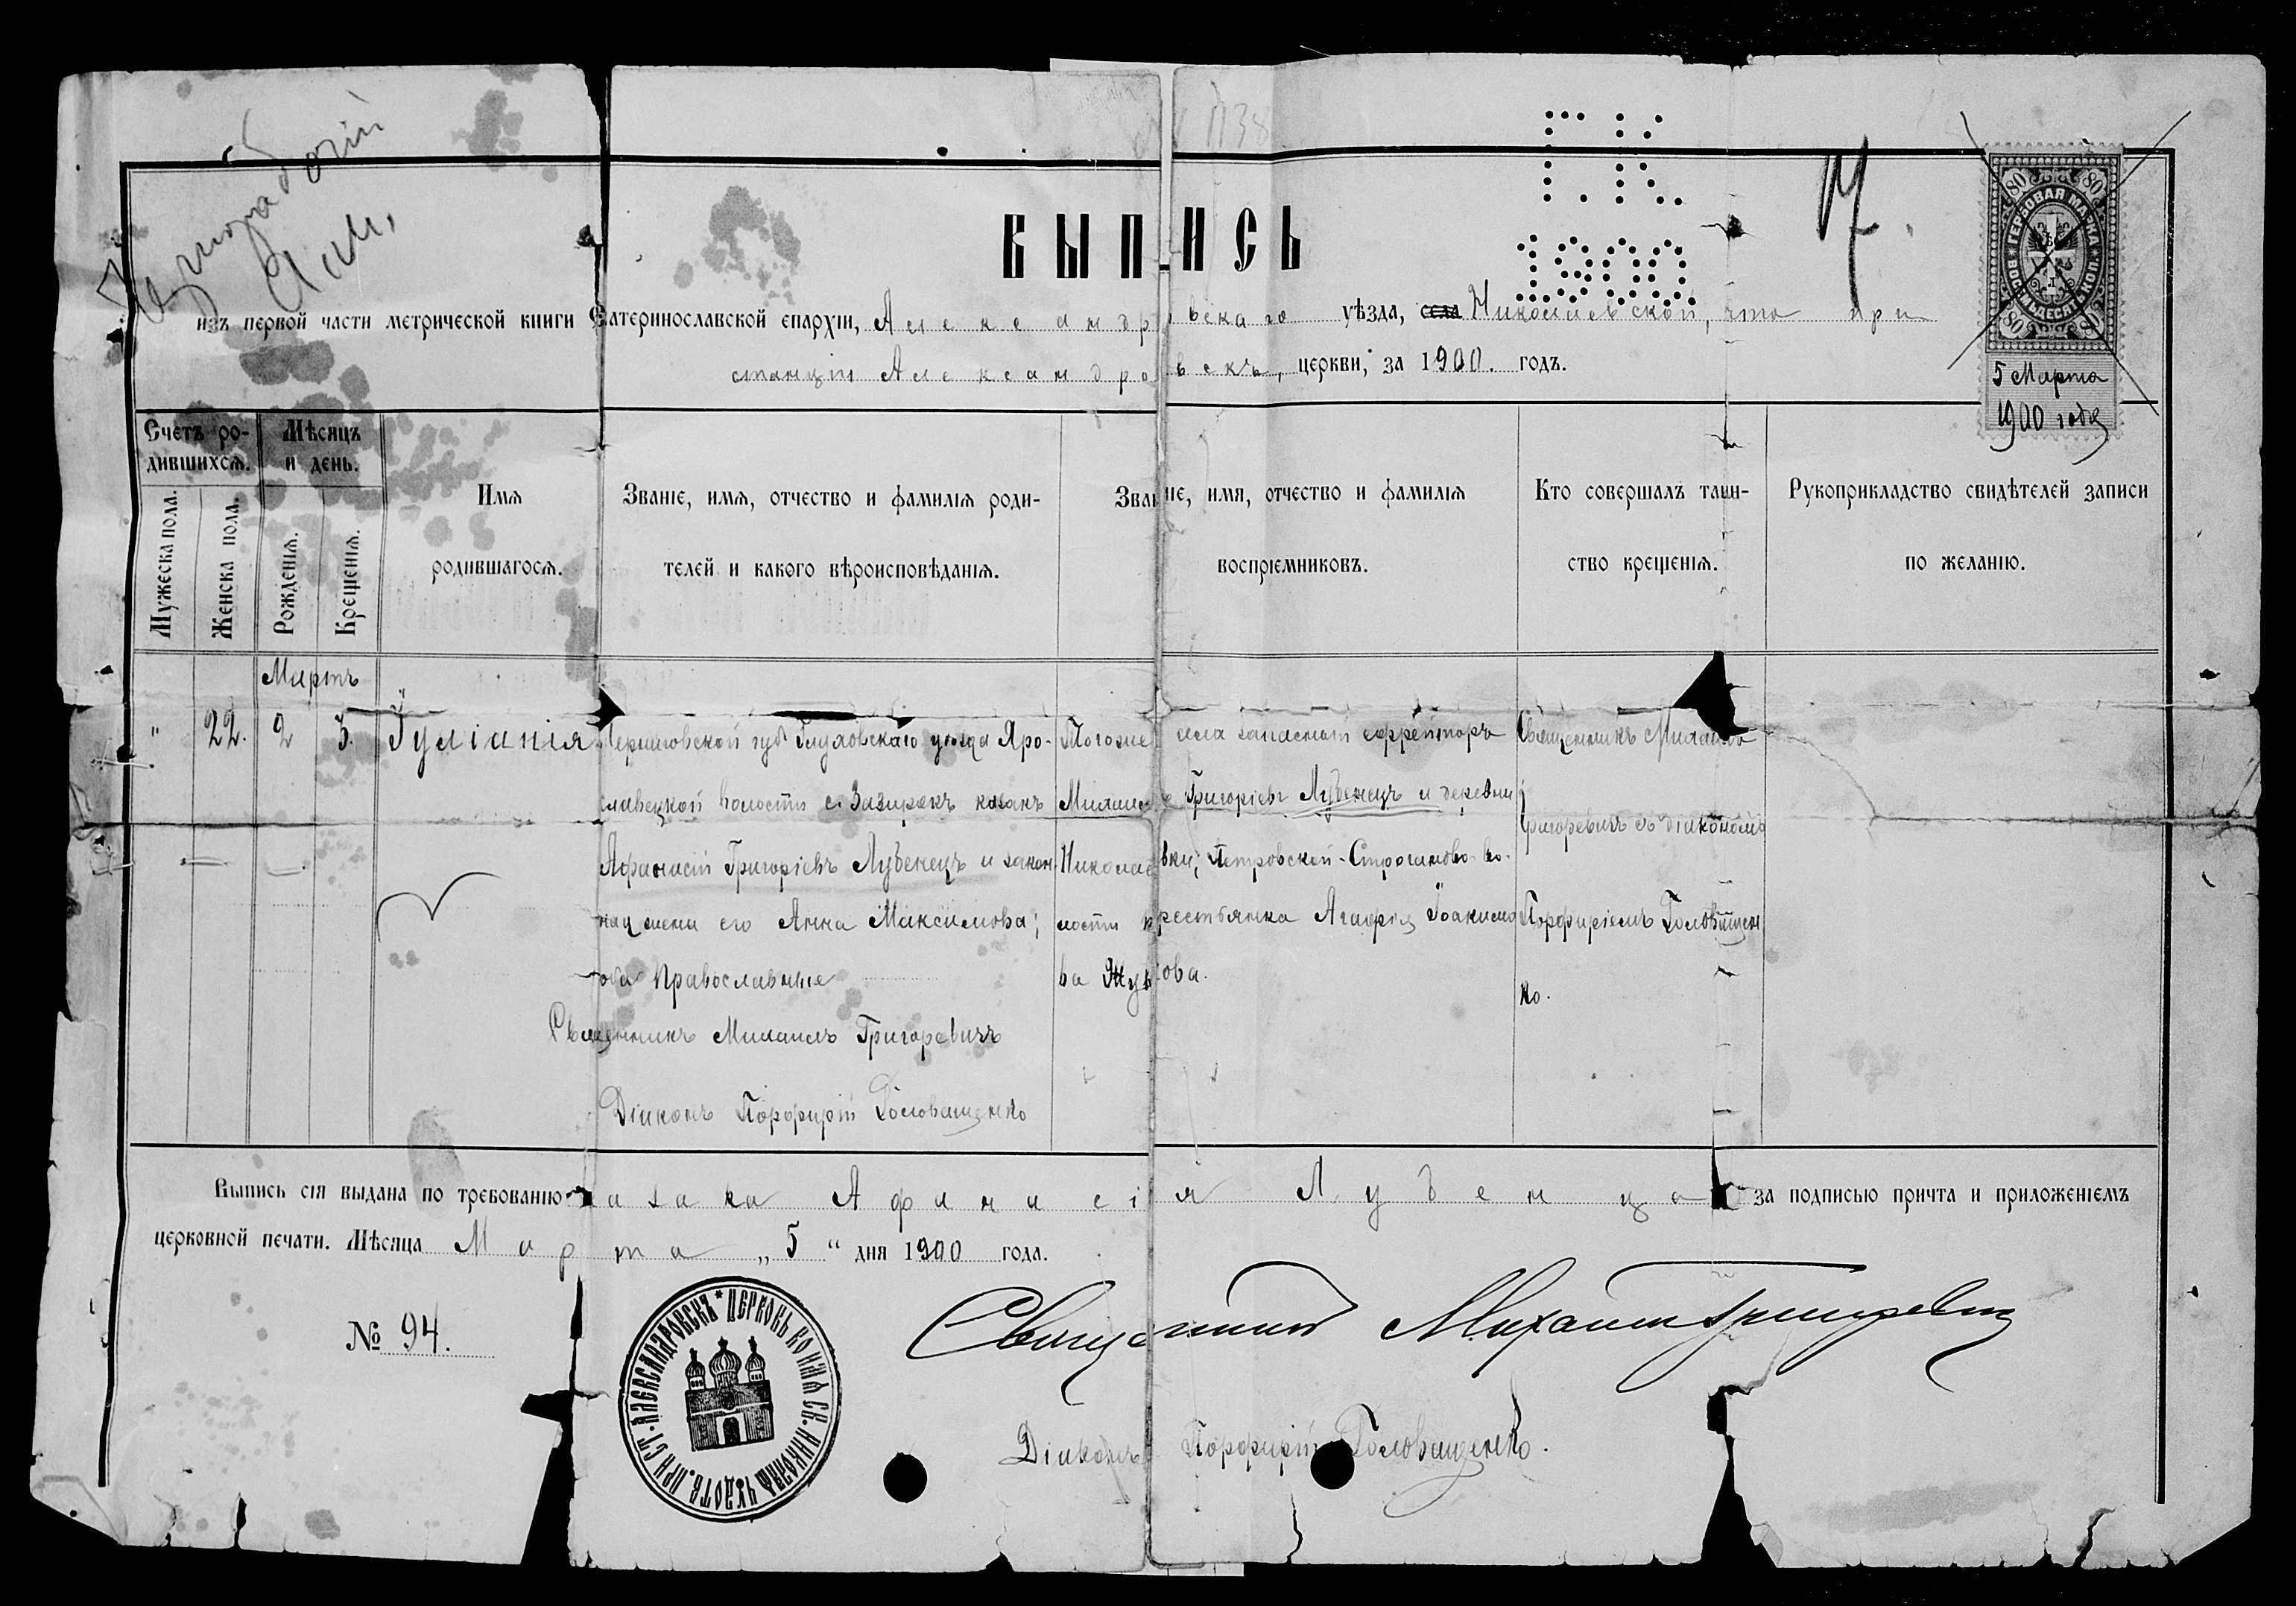 П 38
Г. К.
1900
ВЫПИСЬ
изъ первой части метрической книги Екатеринославской епархіи, Александровскаго уѣзда, села Николаевской, что при
станціи Александровскъ, церкви, за 1900. годъ.
80 80
ГЕРБОВАЯ МАРКА ВОСЕМЬДЕСЯТЪ КОП.
80 80
5 Марта
1900 года
Счетъ ро-
дившихся.
Мѣсяцъ
и день.
Мужеска пола.
Женска пола.
Рожденія.
Крещенія.
Имя
родившагося.
Званіе, имя, отчество и фамилія роди-
телей и какого вѣроисповѣданія.
Званіе, имя, отчество и фамилія
воспріемниковъ.
Кто совершалъ таин-
ство крещенія.
Рукоприкладство свидѣтелей записи
по желанію.
Мартъ
" 22. 2 3. Іуліанія
Черниговской губ Глуховскаго уѣзда Яро-
славецкой волости с. Зазирокъ козакъ
Афанасій Григоріевъ Лубенецъ и закон-
ная жена его Анна Максимова;
оба Православные
Священникъ Михаилъ Григоревичъ
Діаконъ Порфирій Головащенко
Тогоже села запасный ефрейторъ
Михаилъ Григоріевъ Лубенецъ и деревни
Николаевки, Петровской-Строганово во-
лости крестьянка Агафія Іоакимо
ва Жукова.
Священникъ Михаилъ
Григоревичъ съ діакономъ
Порфиріемъ Головащен
ко.
Выпись сія выдана по требованію казака Афанасія Лубенца за подписью причта и приложеніемъ
церковной печати. Мѣсяца Марта „5" дня 1900 года.
№ 94.
ЦЕРКОВЬ ВО ИМЯ СВ. НИКОЛАЯ ЧУДОТВ. ПРИ СТ. АЛЕКСАНДРОВСКЪ *
Священникъ Михаилъ Григоревичъ
Діаконъ Порфирій Головащенко.